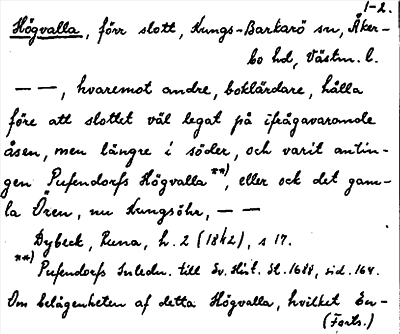 1-2.
Högvalla, förr slott, Kungs-Barkarö sn, Åker-
bo hd, Västm. l.
— —, hvaremot andre, boklärdare, hålla
före att slottet väl legat på ifrågavarande
åsen, men längre i söder, och varit antin-
gen Pufendorfs Högvalla **), eller ock det gam-
la Ören, nu Kungsöhr, — —
Dybeck, Runa, h. 2 (1842), s 17.
**) Pufendorfs Inledn. till Sv. Hist. St. 1688, sid. 164.
Om belägenheten af detta Högvalla, hvilket Er-
(Forts.)